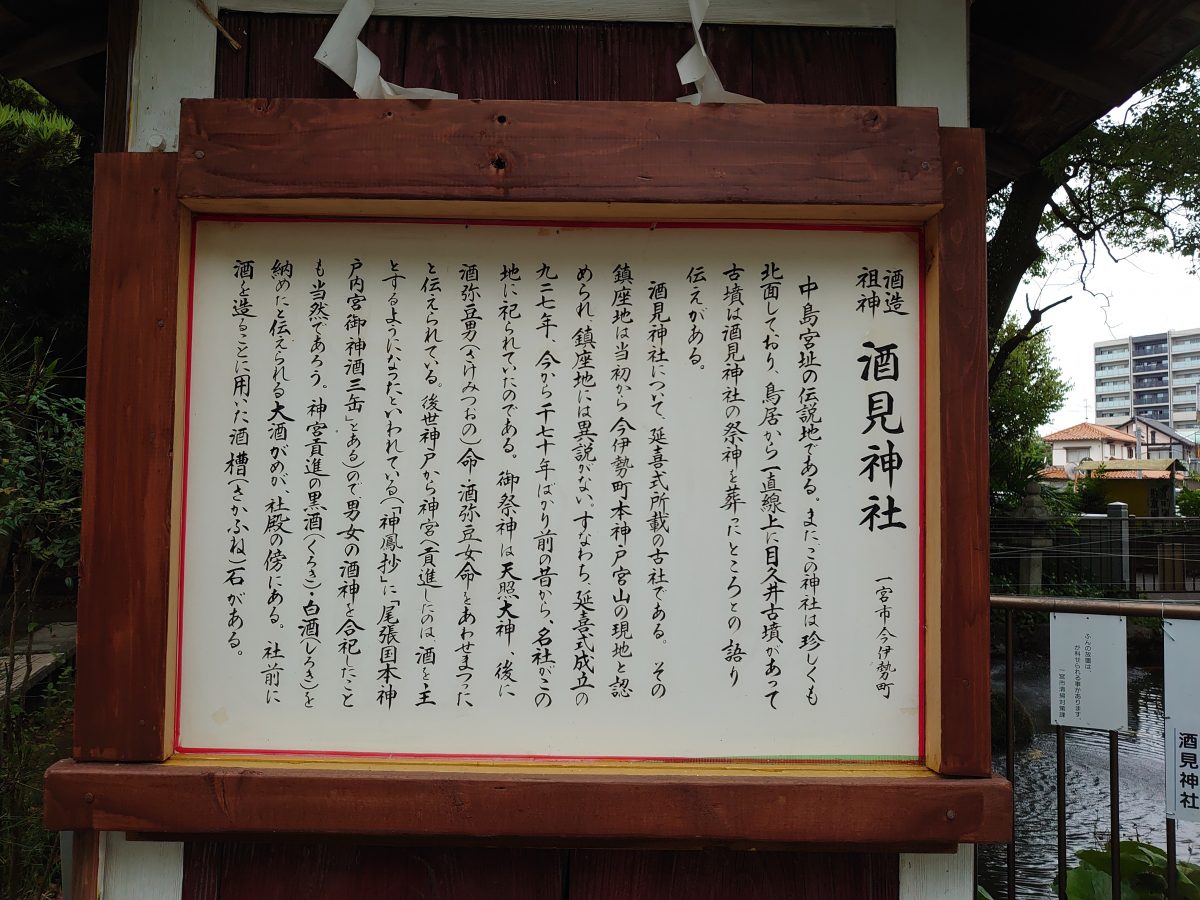 酒造
祖神
酒見神社
一宮市今伊勢町
中島宮址の伝説地である。またこの神社は珍しくも
北面しており、鳥居から一直線上に目久井古墳があって
古墳は酒見神社の祭神を葬ったところとの語り
伝えがある。
酒見神社について、延喜式所載の古社である。その
鎮座地は当初から今伊勢町本神戸宮山の現地と認
められ、鎮座地には異説がない。すなわち、延喜式成立の
九二七年、今から千七十年ばかり前の昔から、名社がこの
地に祀られていたのである。御祭神は天照大神、後に
酒弥豆男(さけみつおの)命・酒弥豆女命をあわせまつった
と伝えられている。後世神戸から神宮へ貢進したのは、酒を主
とするようになったといわれている(「神鳳抄」に「尾張国本神
戸内宮御神酒三缶」とある)ので男女の酒神を合祀したこと
も当然であろう。神宮貢進の黒酒(くろき)・白酒(しろき)を
納めたと伝えられる大酒がめが、社殿の傍にある。社前に
酒を造ることに用いた酒槽(さかふね)石がある。
ふんの放置は、
が科せられる事があります
一宮市清掃対策課
酒見神社